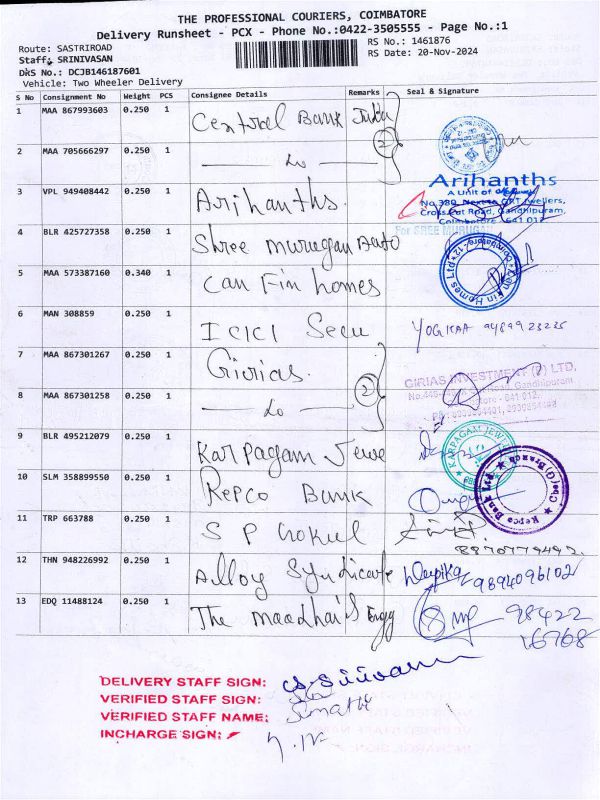 THE PROFESSIONAL COURIERS, COIMBATORE
Delivery Runsheet - PCX - Phone No.:0422-3505555 - Page No.:1
Route: SASTRIROAD RS No.: 1461876
Staff: SRINIVASAN RS Date: 20-Nov-2024
DRS No.: DCJB146187601
Vehicle: Two Wheeler Delivery
S No Consignment No Weight PCS Consignee Details Remarks Seal & Signature
1 MAA 867993603 0.250 1 Central Bank
2 MAA 705666297 0.250 1 Do (2)
3 VPL 949408442 0.250 1 Arihanths. Arihanths
A Unit of
No 380, Next to GRT Jwellers,
Cross Cut Road, Gandhipuram,
Coimbatore - 641 012
4 BLR 425727358 0.250 1 Shree Murugan Auto For SREE MURUGAN
5 MAA 573387160 0.340 1 Can Fin homes Can Fin Homes Ltd
6 MAN 308859 0.250 1 ICICI Secu
7 MAA 867301267 0.250 1 Girias. GIRIAS INVESTMENT (P) LTD,
Gandhipuram
8 MAA 867301258 0.250 1 Do (2) 641 012.
9 BLR 495212079 0.250 1 Karpagam Jewe KARPAGAM JEWE
10 SLM 358899550 0.250 1 Repco Bank Repco Bank Ltd.
11 TRP 663788 0.250 1 S P Gokul
8870779492.
12 THN 948226992 0.250 1 Alloy Syndicate Deepika 9894096102
13 EDQ 11488124 0.250 1 The Maadhai's Engg 98422
16768
DELIVERY STAFF SIGN:
VERIFIED STAFF SIGN:
VERIFIED STAFF NAME:
INCHARGE SIGN: